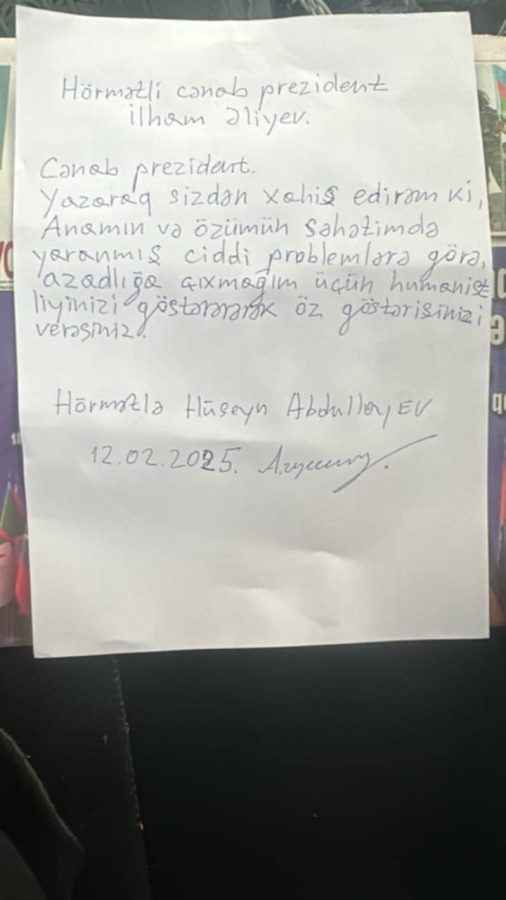 Hörmətli cənab prezident
ilham Əliyev.
Cənab prezident.
Yazaraq sizdən xahiş edirəm ki,
Anamın və özümün səhətimdə
yaranmış ciddi problemlərə görə,
azadlığa çıxmağım üçün humanist
liyinizi göstərərək öz göstərişinizi
verəsiniz.
Hörmətlə Hüseyn AbdullayEV
12.02.2025.